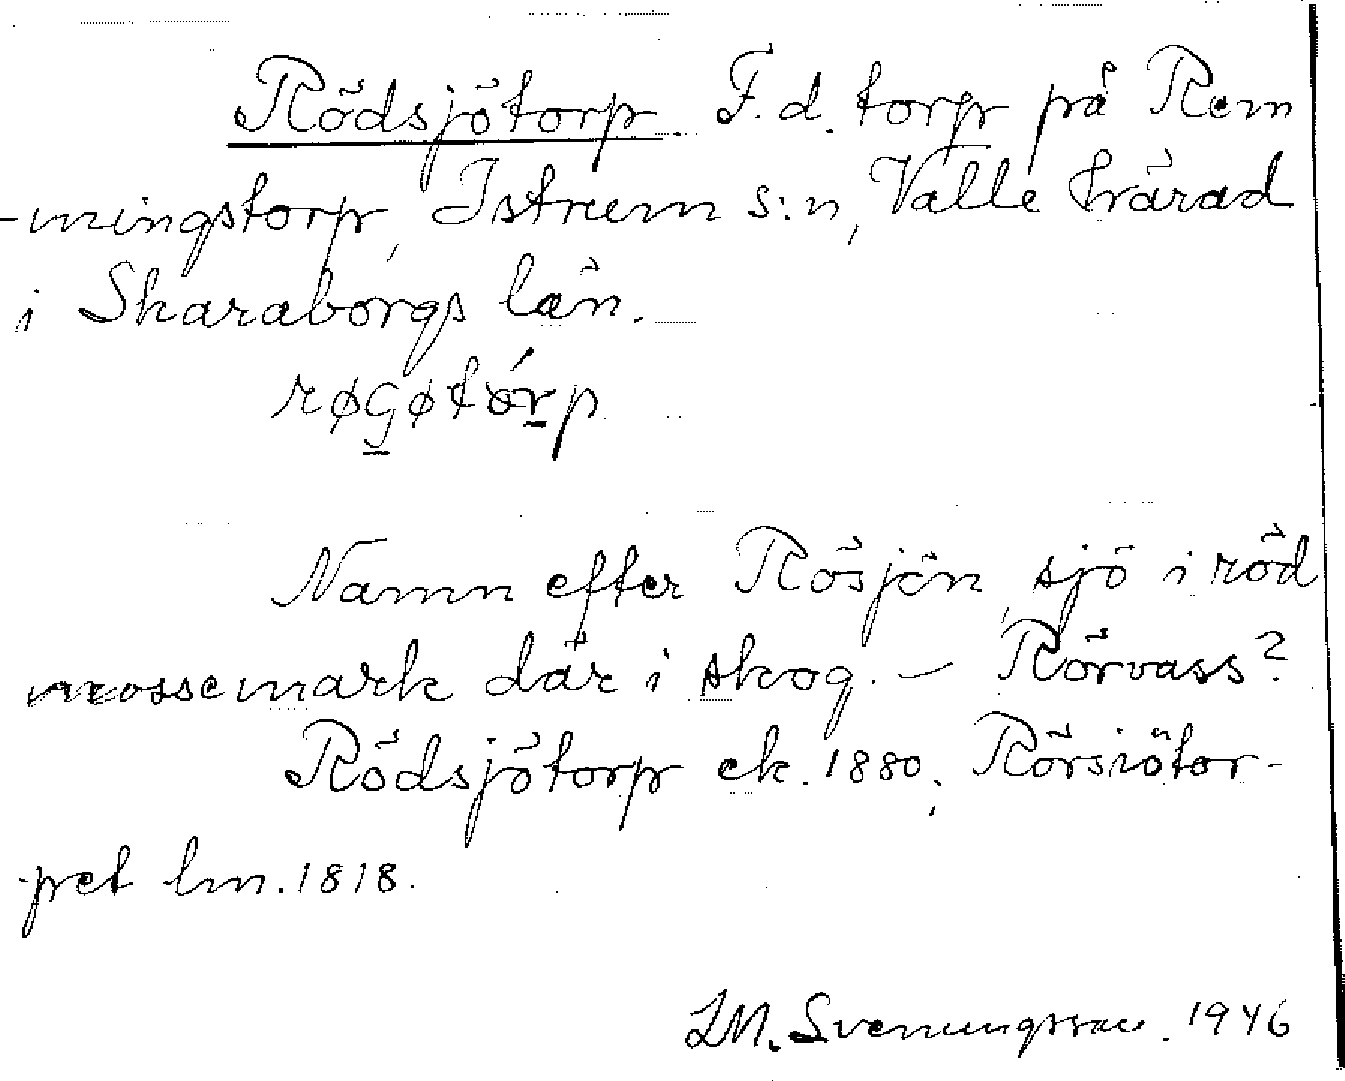 Rödsjötorp. F.d. torp på Rem
-mingstorp, Istrum s:n, Valle härad
i Skaraborgs län.
røGøtórp
Namn efter Rösjön, sjö i röd
mossemark där i skog. – Rörvass?
Rödsjötorp ek. 1880; Rörsiötor-
-pet lm. 1818.
LM. Svenungsson. 1946